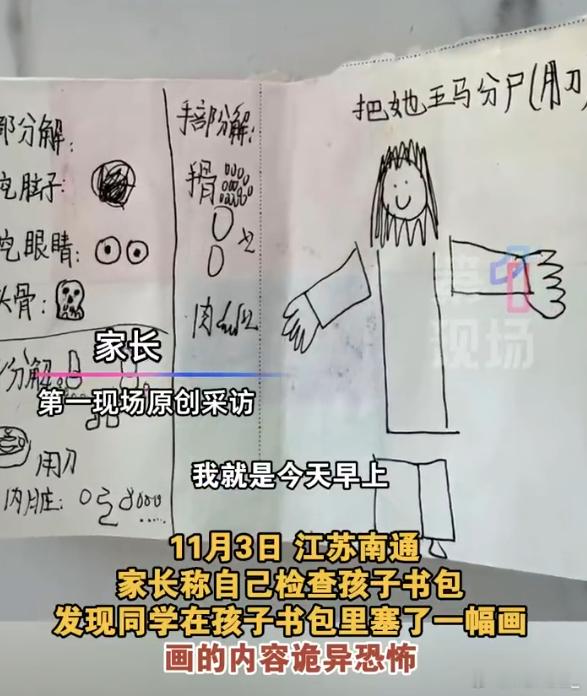 把她五马分尸(用刀)
部分解:
眼睛:
头骨:
分解
用刀
内脏:
手部分解:
手骨
x2
肉
x2
第1
现场
家长
第一现场原创采访
我就是今天早上
11月3日 江苏南通
家长称自己检查孩子书包
发现同学在孩子书包里塞了一幅画
画的内容诡异恐怖